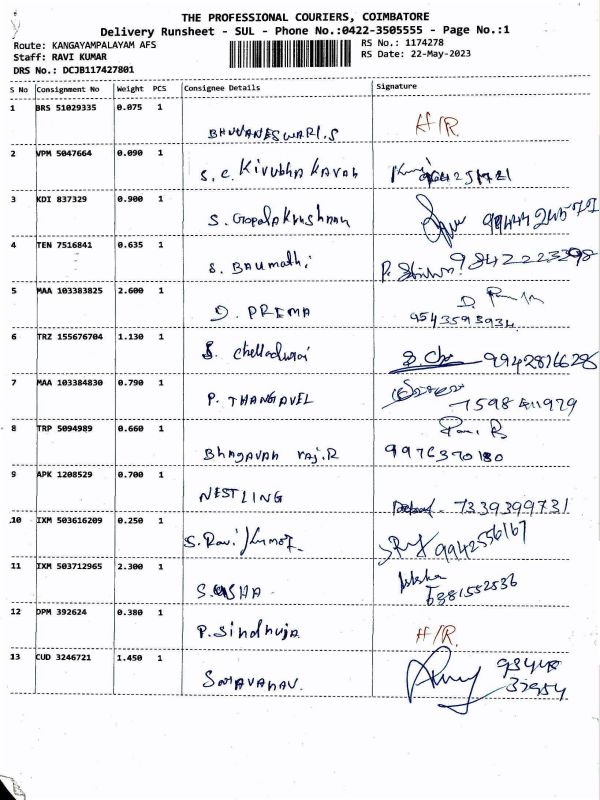 THE PROFESSIONAL COURIERS, COIMBATORE
Delivery Runsheet - SUL - Phone No.:0422-3505555 - Page No.:1
Route: KANGAYAMPALAYAM AFS
RS No.: 1174278
Staff: RAVI KUMAR
RS Date: 22-May-2023
DRS No.: DCJB117427801
S No Consignment No Weight PCS Consignee Details Signature
1 BRS 51029335 0.075 1
BHUVANESWARI.S H/R.
2 VPM 5047664 0.090 1
S. C.
3 KDI 837329 0.900 1
S. Gopalakrishnan
4 TEN 7516841 0.635 1
S. BAUmathi 9842223298
5 MAA 103383825 2.600 1
D. PREMA 9543593934
6 TRZ 155676704 1.130 1
S. Chelladurai 99428766286
7 MAA 103384830 0.790 1
P. THANGAVEL
8 TRP 5094989 0.660 1
Bhagavan raj.R 9976370180
9 APK 1208529 0.700 1
NESTLING 7339399731
10 IXM 503616209 0.250 1
S. Ravi Kumar. 9942556167
11 IXM 503712965 2.300 1
S. USHA 6381552536
12 DPM 392624 0.380 1
P. Sindhuja H/R.
13 CUD 3246721 1.450 1